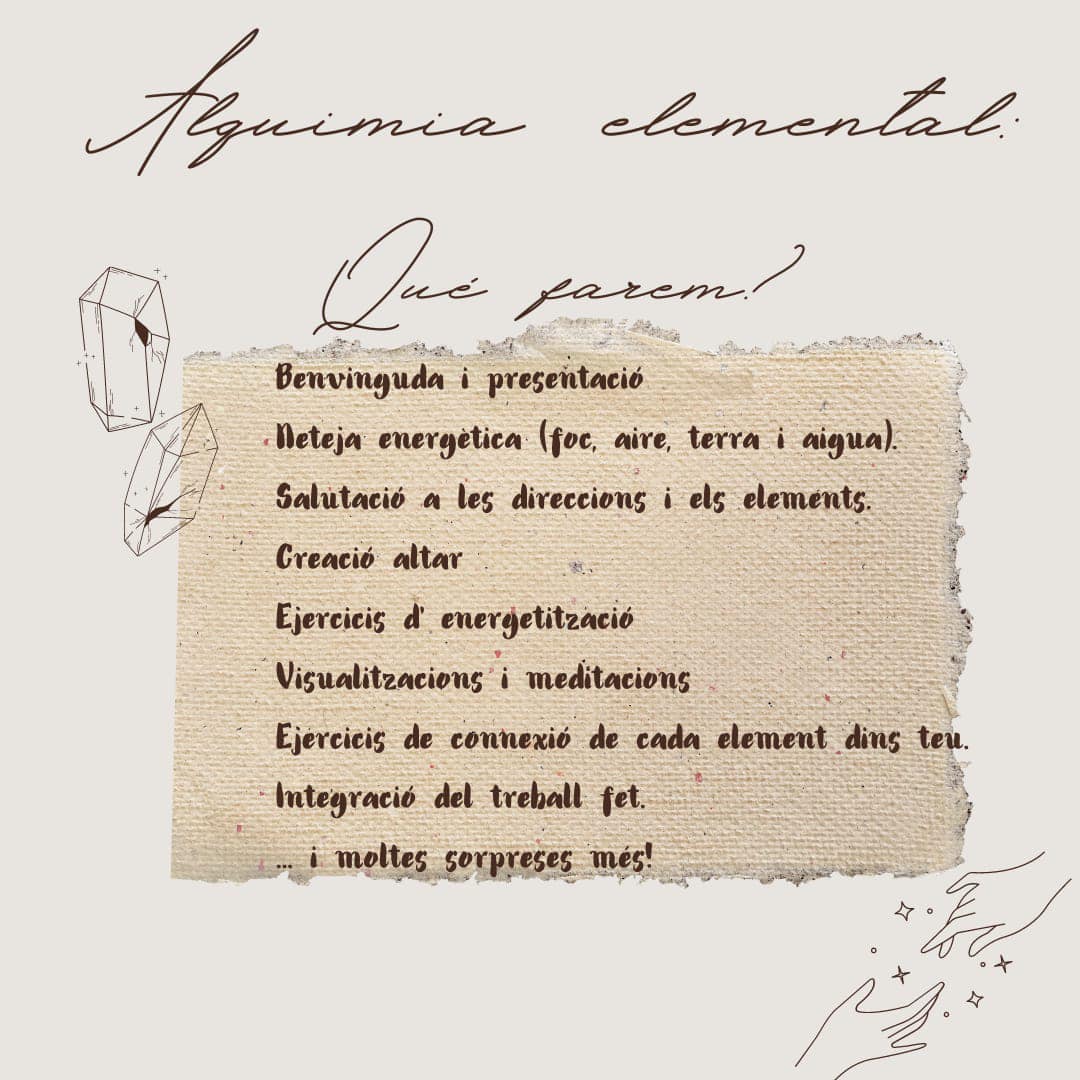 Alquimia elemental:
Qué farem?
Benvinguda i presentació
Neteja energètica (foc, aire, terra i aigua).
Salutació a les direccions i els elements.
Creació altar
Ejercicis d' energetització
Visualitzacions i meditacions
Ejercicis de connexió de cada element dins teu.
Integració del treball fet.
... i moltes sorpreses més!